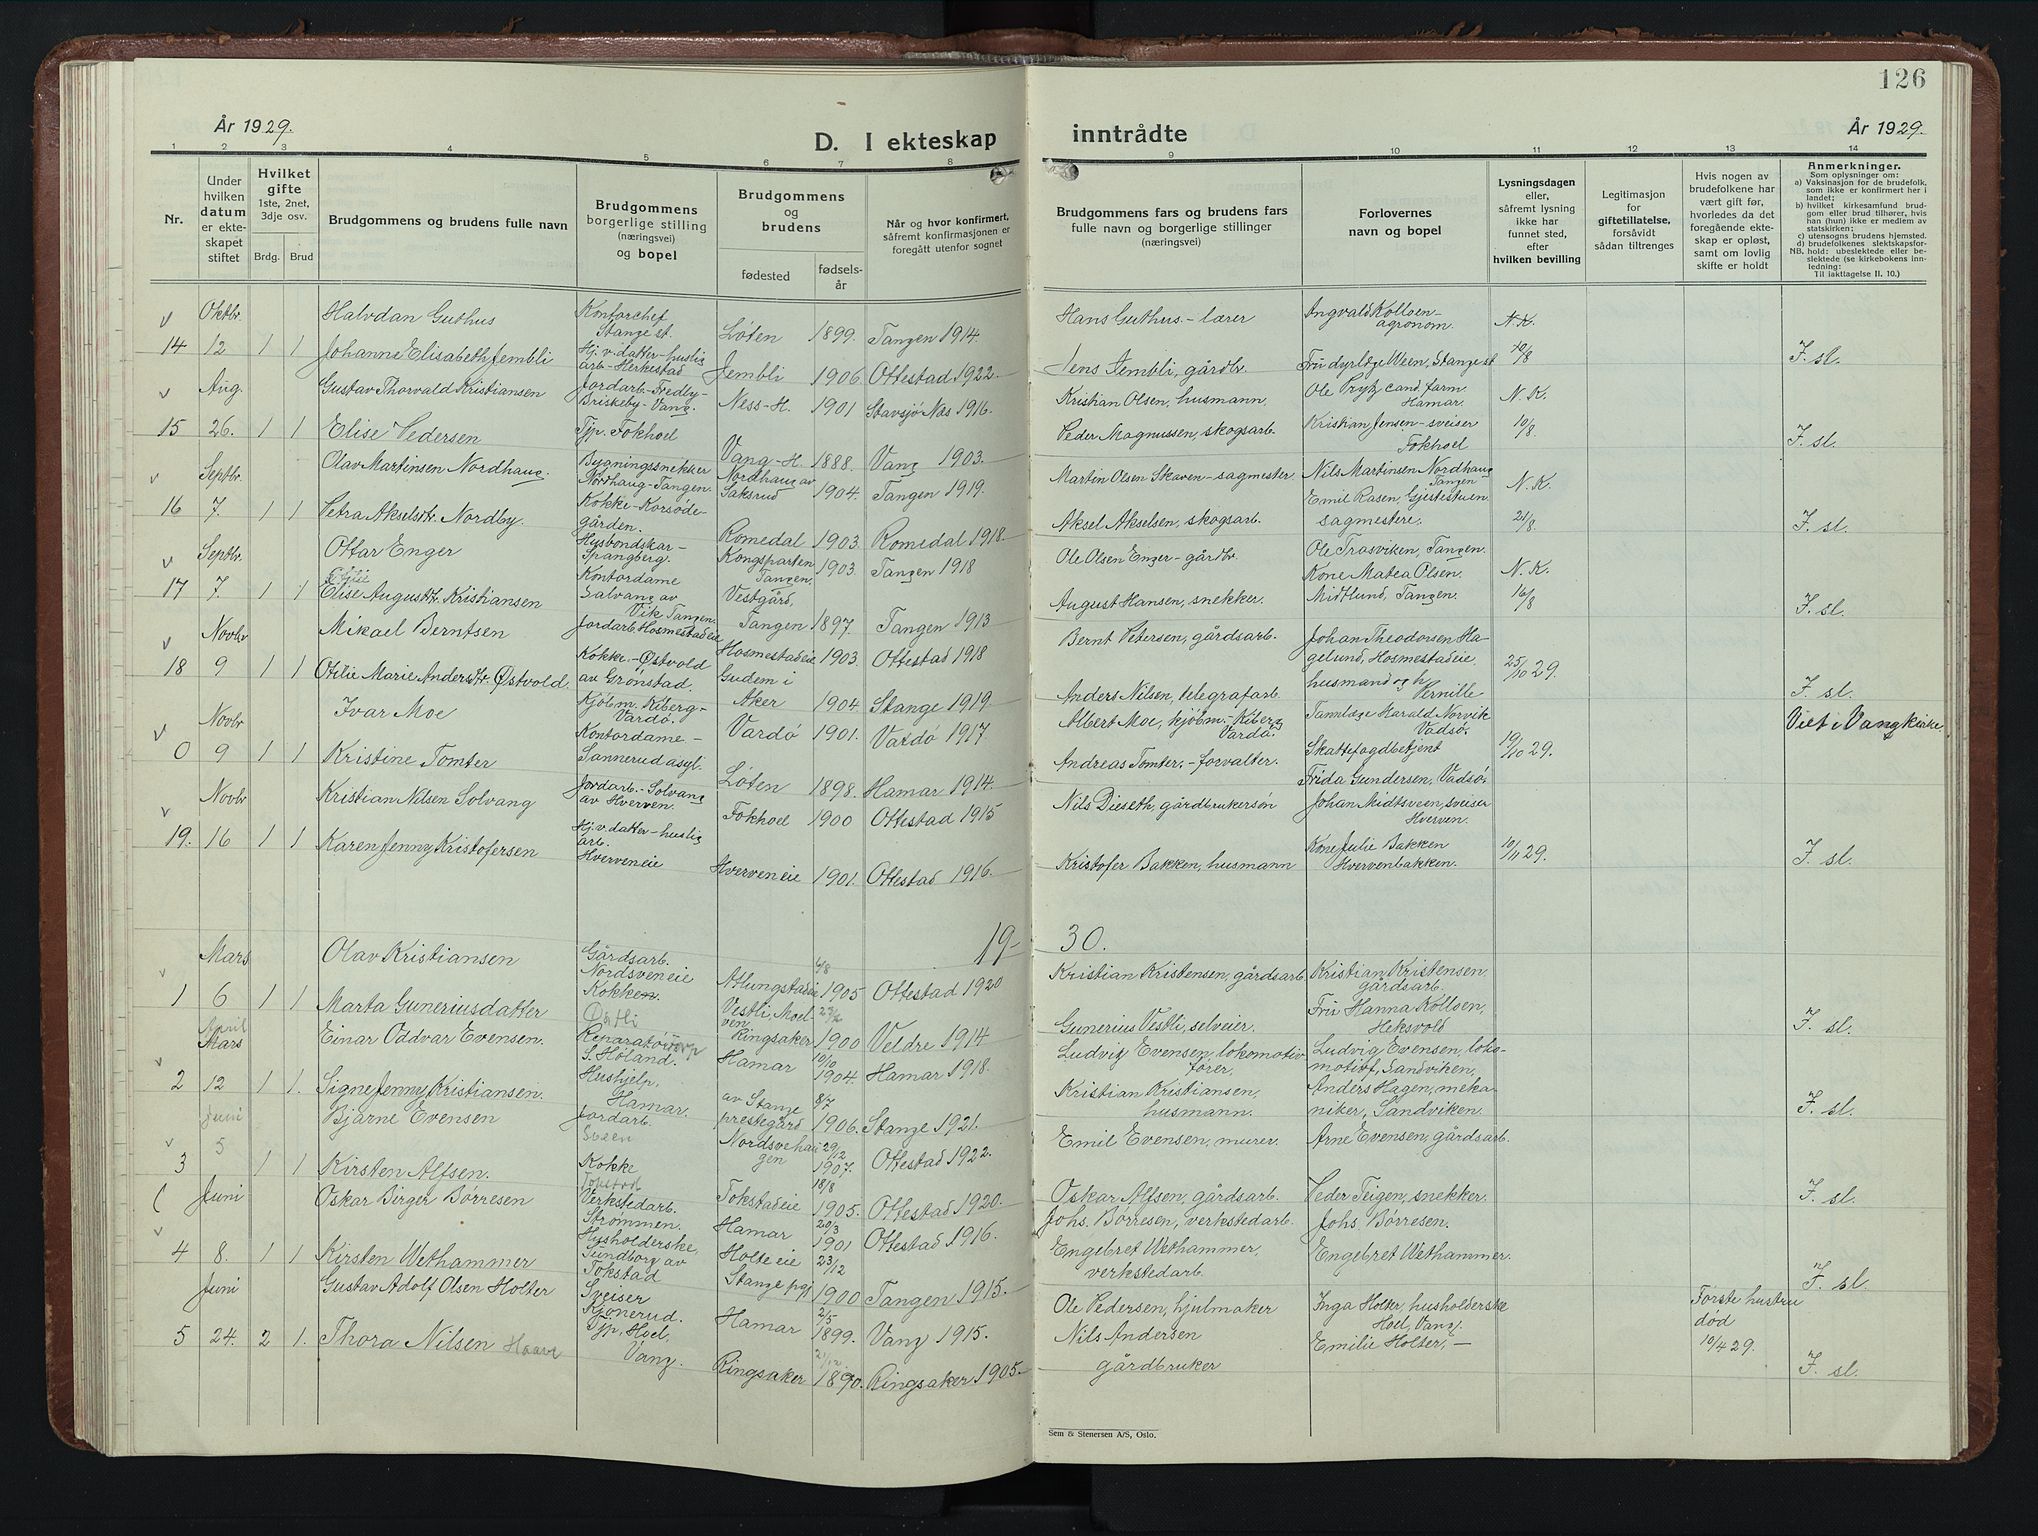 126
År 1929.
D. I ekteskap
inntrådte
År 1929.
1 2 3 4 5 6 7 8 9 10 11 12 13 14
Nr.
Under hvilken datum er ekteskapet stiftet
Hvilket gifte 1ste, 2net, 3dje osv.
Brdg. Brud
Brudgommens og brudens fulle navn
Brudgommens borgerlige stilling (næringsvei) og bopel
Brudgommens og brudens
fødested
fødselsår
Når og hvor konfirmert, såfremt konfirmasjonen er foregått utenfor sognet
Brudgommens fars og brudens fars fulle navn og borgerlige stillinger (næringsvei)
Forlovernes navn og bopel
Lysningsdagen eller, såfremt lysning ikke har funnet sted, efter hvilken bevilling
Legitimasjon for giftetillatelse, forsåvidt sådan tiltrenges
Hvis nogen av brudefolkene har vært gift før, hvorledes da det foregående ekteskap er opløst, samt om lovlig skifte er holdt
Anmerkninger.
Som oplysninger om:
a) Vaksinasjon for de brudefolk, som ikke er konfirmert her i landet;
b) hvilket kirkesamfund brudgom eller brud tilhører, hvis han (hun) ikke er medlem av statskirken;
c) utensogns brudens hjemsted.
d) brudefolkenes slektskapsforhold: ubeslektede eller beslektede (se kirkebokens innledning:
NB. Til iakttagelse II. 10.)
Oktbr Halvdan Guthus Kontorchef Stange st. Løten 1899. Tangen 1914. Hans Guthus - lærer Ingvald Kolloen - agronom. N.K.
14 12 1 1 Johanne Elisabeth Jembli Hj. v. datter - huslig arb - Herkestad Jembli 1906 Ottestad 1922. Jens Jembli, gårdbr. Fru dyrlæge Ween, Stange st 10/8 F. sl.
Aug. Gustav Thorvald Kristiansen Jordarb - Fredby - Briskeby - Vang. Ness - H. 1901 Stavsjø Næs 1916. Kristian Olsen, husmann. Ole Prytz cand. farm Hamar. N.K.
15 26. 1 1 Elise Pedersen Tjp. Fokhoel Vang - H. 1888. Vang 1903. Peder Magnussen, skogsarb. Kristian Jensen - sveiser Fokhoel 10/8. F. sl.
Septbr. Olav Martinsen Nordhaug Bygningssnekker Nordhaug - Tangen. Nordhaug av Saksrud 1904. Tangen 1919. Martin Olsen Skaven - sagmester Nils Martinsen Nordhaug Tangen N.K.
16 7. 1 1 Petra Akselsdtr. Nordby. Kokke - Korsødegården. Romedal 1903. Romedal 1918 Aksel Akselsen, skogsarb. Emil Rasen, Gjestestuen. sagmestere. 21/8. F. sl.
Septbr Ottar Enger Husbondskar - Spangberg. Kongsparten Tangen. 1903. Tangen 1918 Ole Olsen Enger - gårdbr. Ole Trasviken, Tangen. N.K.
17 7. 1 1 Elise Augustdtr. Kristiansen Kontordame Solvang av Vik Tangen. Vestgård, Tangen 1897. Tangen 1913 August Hansen, snekker. Kone Matea Olsen. Midtlund, Tangen. 16/8 F. sl.
Novbr Mikael Berntsen Jordarb Hosmestadeie Hosmestadeie 1903. Ottestad 1918 Bernt Petersen, gårdsarb. Johan Theodorsen Hagelund, Hosmestadeie.
18 9 1 1 Otilie Marie Andersdtr. Østvold. Kokke - Østvold av Grønstad. Gudem i Aker 1904 Stange 1919 Anders Nilsen, telegrafarb. husmand og h. Pernille 25/10 29. F. sl.
Novbr Ivar Moe Kjøbm. Kiberg - Vardø. Vardø 1901. Vardø 1917. Albert Moe, kjøbm - Kiberg Vardø. Tannlæge Harald Norvik Vadsø. Viet i Vang kirke
0 9 1 1 Kristine Tomter Kontordame - Sannerud asyl. Løten 1898. Hamar 1914. Andreas Tomter - forvalter. Skattefogdbetjent Frida Gundersen, Vadsø. 19/10 29.
Novbr Kristian Nilsen Solvang Jordarb. - Solvang av Hverven. Fokhoel 1900 Ottestad 1915 Nils Dieseth, gårdbrukersøn Johan Midtsveen, sveiser Hverven.
19. 16 1 1 Karen Jenny Kristofersen Hj. v. datter - huslig arb. Hverveneie Hverveneie 1901. Ottestad 1916. Kristofer Bakken, husmann Kone Julie Bakken Hvervenbakken. 10/11 29. F. sl.
19- 30.
Mars Olav Kristiansen Gårdsarb. Nordsveneie Atlungstadeie 6/8 1905 Ottestad 1920 Kristian Kristensen, gårdsarb. Kristian Kristensen. gårdsarb.
1 6 1 1 Marta Guneriusdatter Kokken. Østli Vestli, Moelven Ringsaker 1900 Veldre 1914 Gunerius Vestli, selveier. Fru Hanna Kolloen, Heksvold F. sl.
April
Mars Einar Oddvar Evensen. Reparatør S. Høland. Hamar 10/10 1904. Hamar 1918. Ludvig Evensen, lokomotivfører, Ludvig Evensen, lokomotivf. Sandviken,
2 12 1 1. Signe Jenny Kristiansen. Hushjelp, Hamar. av Stange prestegård 8/7 1906. Stange 1921. Kristian Kristiansen, husmann. Anders Hagen, mekaniker, Sandviken. F. sl.
Juni Bjarne Evensen Jordarb. Sveen Nordsvehaugen 29/12 1907. Ottestad 1922. Emil Evensen, murer. Arne Evensen, gårdsarb.
3 5 1 1 Kirsten Alfsen. Kokke Tokstad Tokstadeie 18/8 1905. Ottestad 1920. Oskar Alfsen, gårdsarb. Peder Teigen, snekker. F. sl.
Juni Oskar Birger Børresen Verkstedarb. Strommen. Hamar 20/3 1901 Ottestad 1916. Johs. Børresen, verkstedarb. Johs. Børresen.
4 8. 1 1 Kirsten Wethammer Husholderske, Sundborg av Tokstad Holteeie Stange pgj 23/12 1900 Tangen 1915. Engebret Wethammer, verkstedarb. Engebret Wethammer. F. sl.
Juni Gustav Adolf Olsen Holter Sveiser Kjonerud. Hamar 2/5 1899. Vang 1915. Ole Pedersen, hjulmaker Inga Holter, husholderske Hoel, Vang. Første hustru død 10/4 29.
5 24. 2 1. Thora Nilsen Tjp. Hoel, Vang. Ringsaker 1890. Ringsaker 1905. Nils Andersen gårdbruker Emilie Holter, - F. sl.
Sem & Stenersen A/S, Oslo.